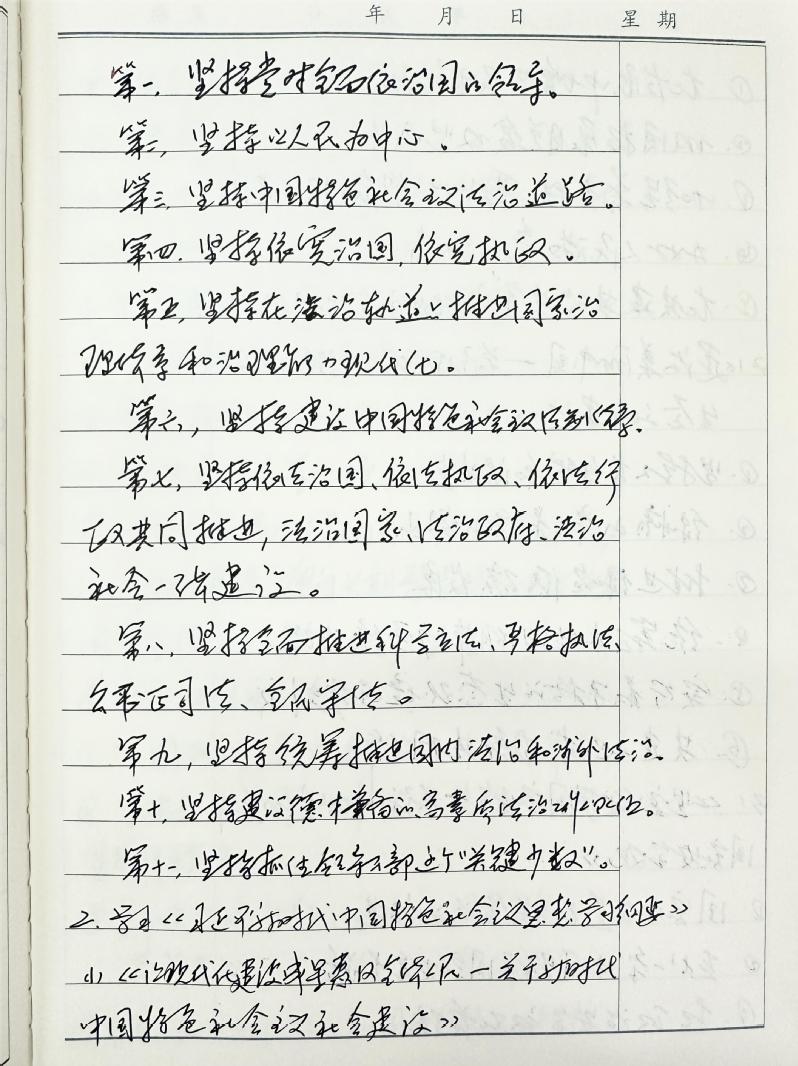 年 月 日 星期
第一，坚持党对全面依法治国的领导。
第二，坚持以人民为中心。
第三，坚持中国特色社会主义法治道路。
第四，坚持依宪治国，依宪执政。
第五，坚持在法治轨道上推进国家治
理体系和治理能力现代化。
第六，坚持建设中国特色社会主义法治体系。
第七，坚持依法治国、依法执政、依法行
政共同推进，法治国家、法治政府、法治
社会一体建设。
第八，坚持全面推进科学立法、严格执法、
公平正司法、全民守法。
第九，坚持统筹推进国内法治和涉外法治。
第十，坚持建设德才兼备的高素质法治工作队伍。
第十一，坚持抓住领导干部这个"关键少数"。
2. 学习《习近平新时代中国特色社会主义思想学习纲要》
(1)《让现代化建设成果惠及全体人民—关于新时代
中国特色社会主义社会建设》